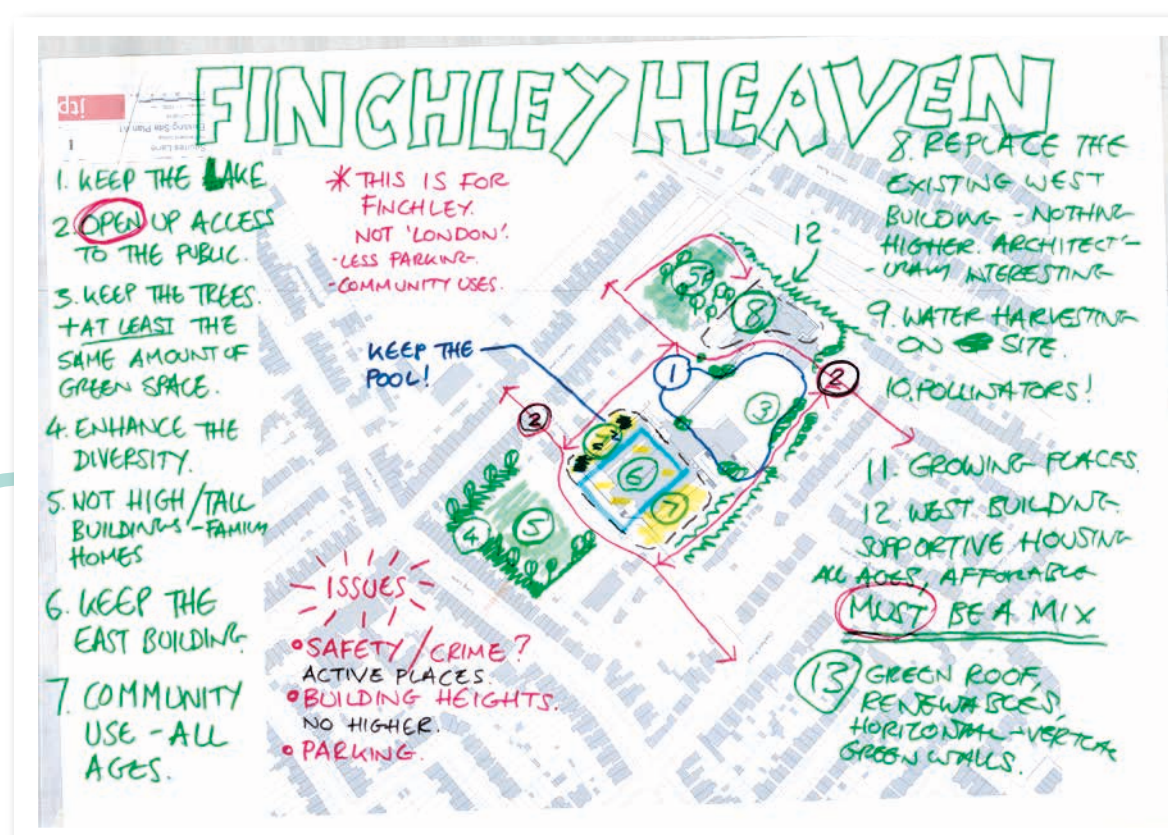 FINCHLEY HEAVEN
jtp
Existing Site Plan A1
Squires Lane
1. KEEP THE LAKE
2. OPEN UP ACCESS
TO THE PUBLIC.
3. KEEP THE TREES.
+ AT LEAST THE
SAME AMOUNT OF
GREEN SPACE.
4. ENHANCE THE
DIVERSITY.
5. NOT HIGH/TALL
BUILDINGS - FAMILY
HOMES
6. KEEP THE
EAST BUILDING.
7. COMMUNITY
USE - ALL
AGES.
* THIS IS FOR
FINCHLEY.
NOT 'LONDON'.
- LESS PARKING.
- COMMUNITY USES.
KEEP THE
POOL!
ISSUES
• SAFETY/CRIME?
ACTIVE PLACES.
• BUILDING HEIGHTS.
NO HIGHER.
• PARKING.
12
5
8
1
2
3
2
6
7
4
5
8. REPLACE THE
EXISTING WEST
BUILDING - NOTHING
HIGHER. ARCHITECT'-
-URALLY INTERESTING
9. WATER HARVESTING
ON SITE.
10. POLLINATORS!
11. GROWING PLACES.
12. WEST BUILDING
SUPPORTIVE HOUSING
ALL AGES, AFFORABLE
MUST BE A MIX
13 GREEN ROOF,
RENEWABLES,
HORIZONTAL - VERTICAL
GREEN WALLS.